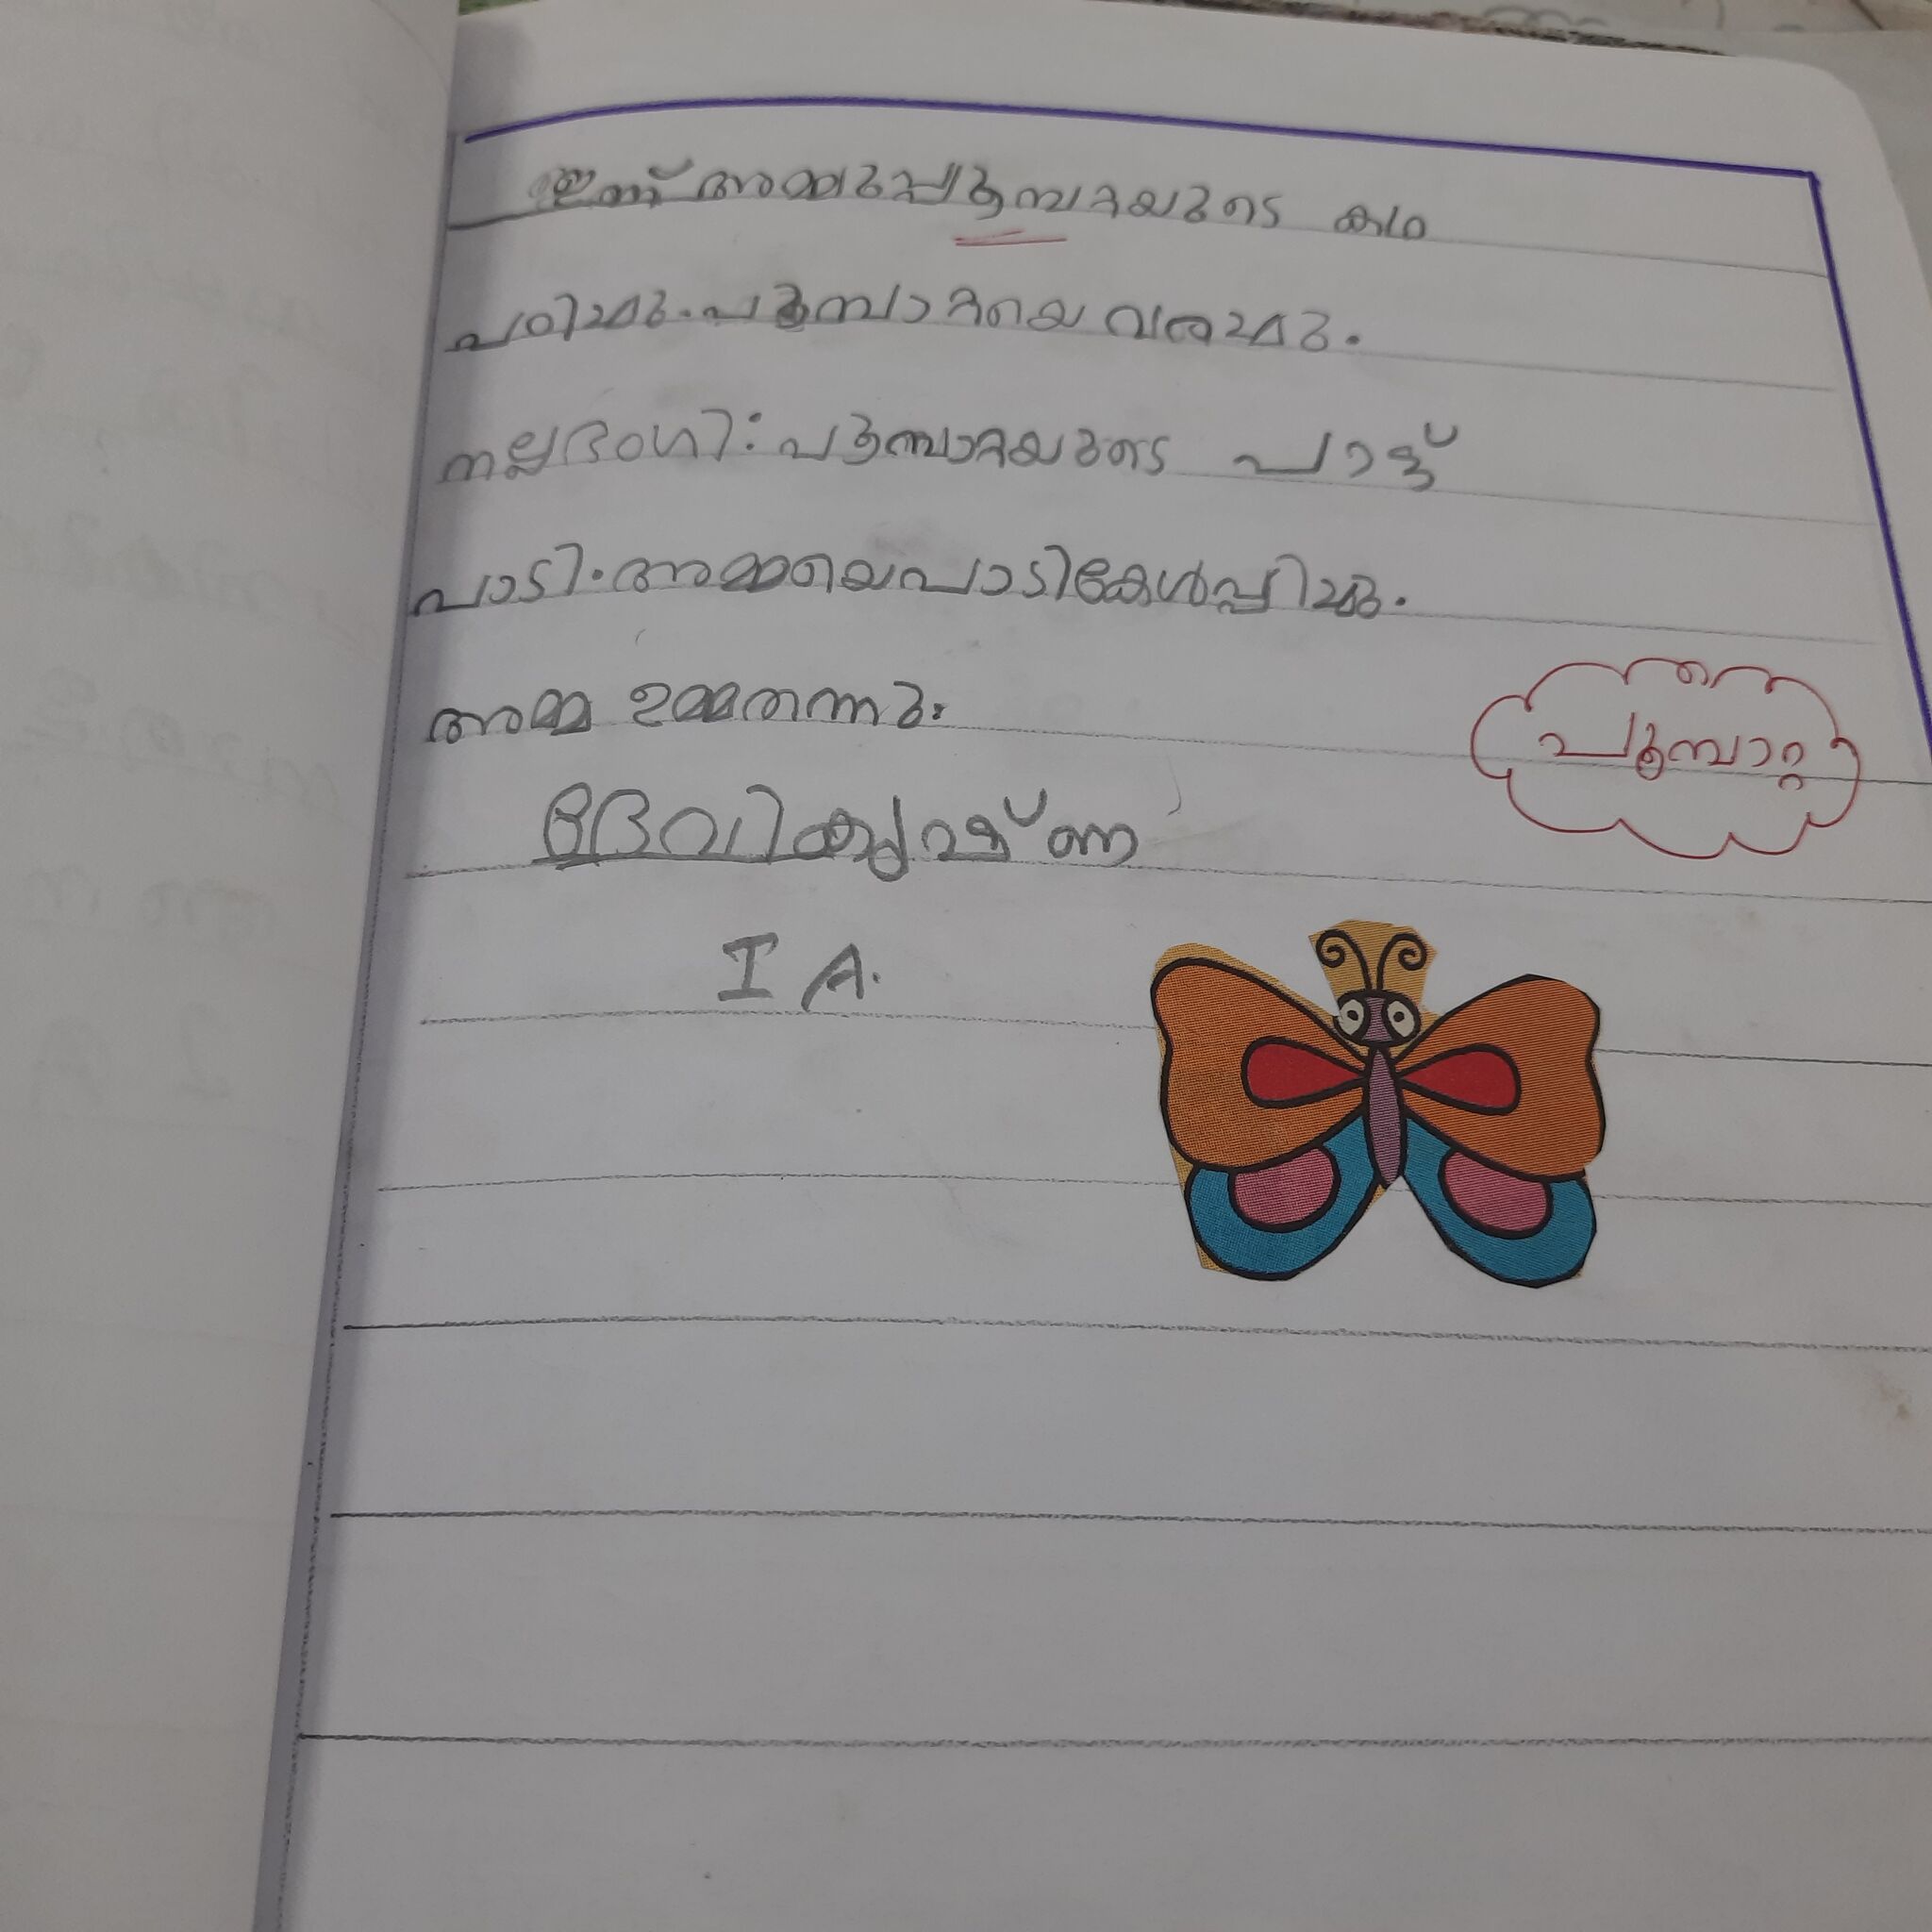 ഇന്ന് അമ്മുപ്പൂമ്പറയുടെ കഥ
പഠിച്ചു. പൂമ്പാറ്റയെ വരച്ചു.
നല്ലഭംഗി. പൂമ്പാറ്റയുടെ പാട്ട്
പാടി. അമ്മയെപാടികേൾപ്പിച്ചു.
അമ്മ ഉമ്മതന്നു.
പൂമ്പാറ്റ
I A.